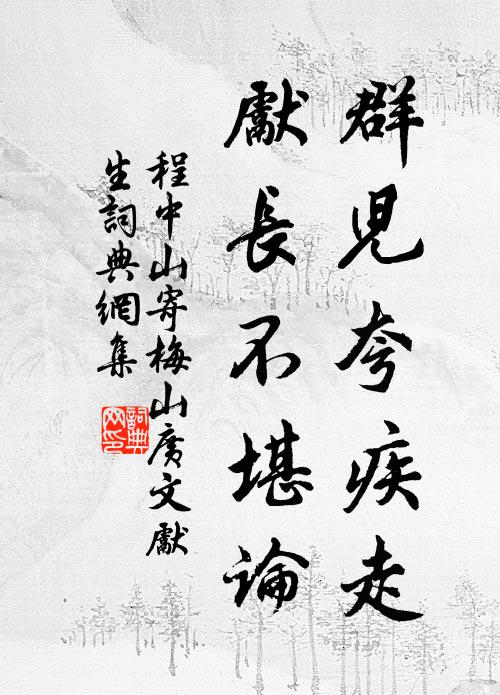 群兒夸疾走
獻長不堪論
程中山寄梅山廣文獻
生詞典網集
詞典
网印